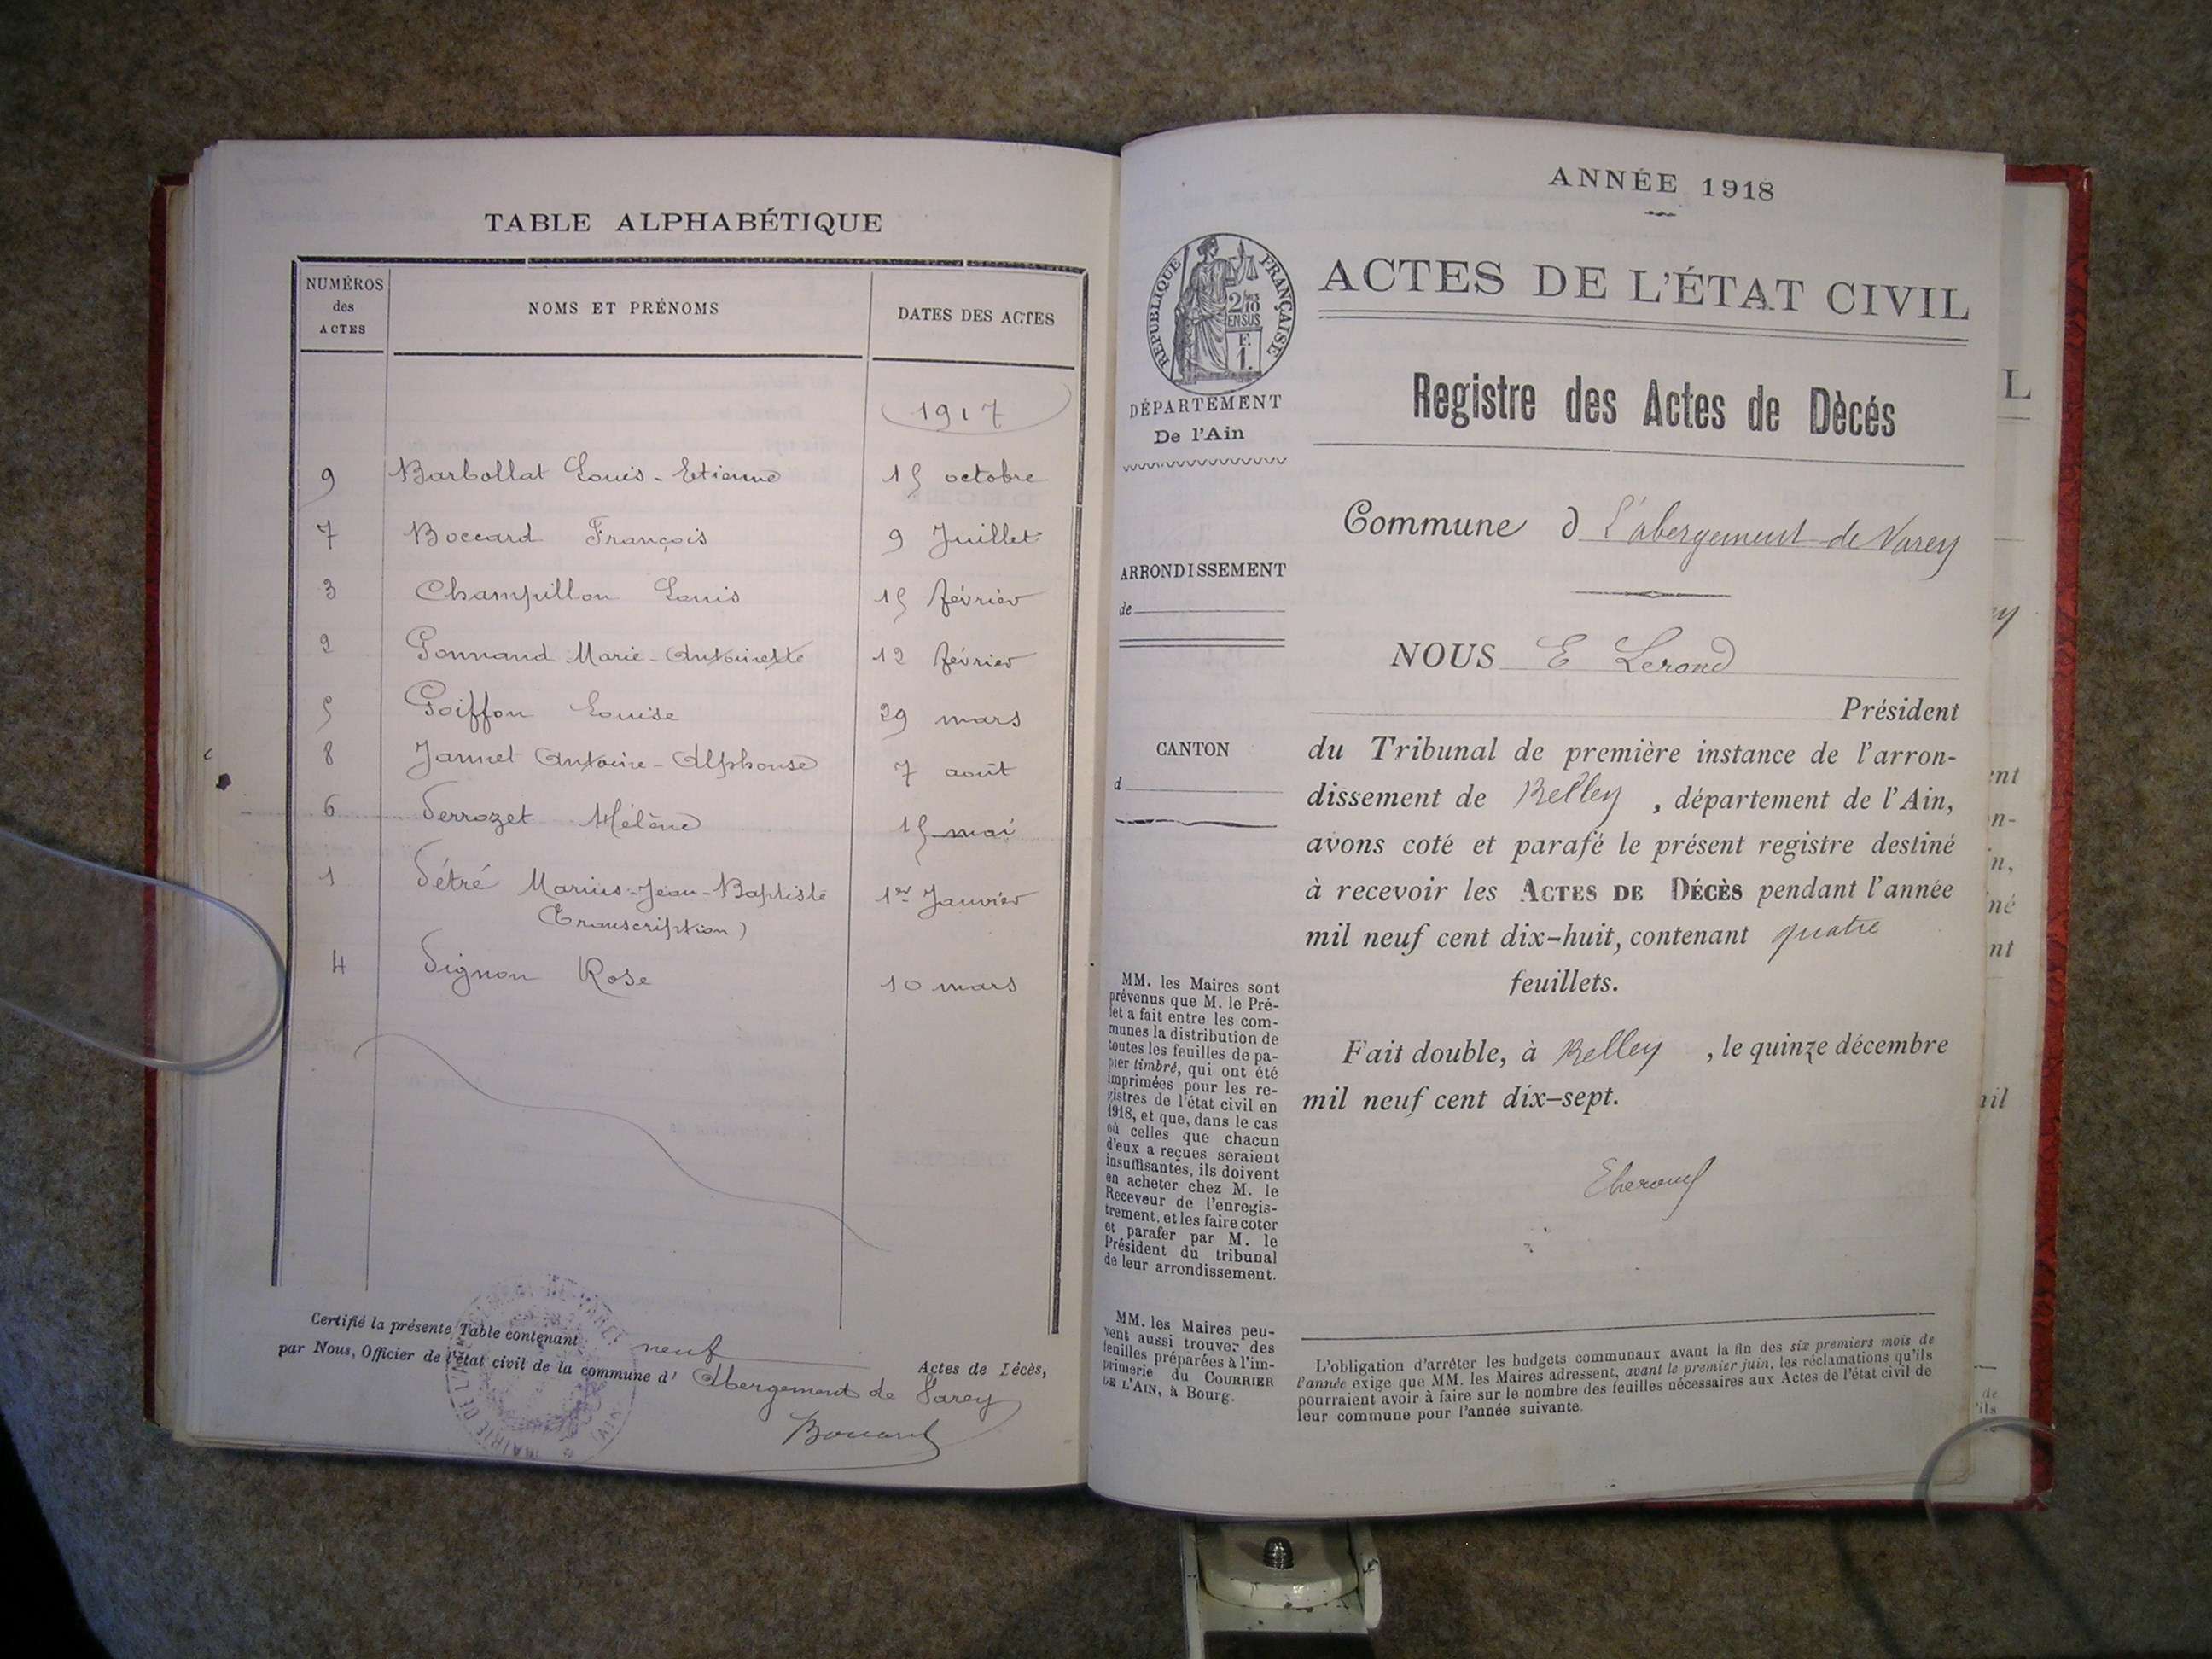 TABLE ALPHABÉTIQUE
NUMÉROS des ACTES
NOMS ET PRÉNOMS
DATES DES ACTES
1917
9 Barbollat Louis-Etienne 15 octobre
7 Boccard François 9 Juillet
3 Champillon Louis 15 février
2 Gonnand Marie-Antoinette 12 février
5 Goiffon Louise 29 mars
8 Jannet Antoine-Alphonse 7 août
6 Perrozet Hélène 15 mai
1 Pétré Marius-Jean-Baptiste 1er Janvier
(Transcription)
4 Pignon Rose 10 mars
Certifié la présente Table contenant neuf Actes de Décès,
par Nous, Officier de l'état civil de la commune d' Abergement de Varey
ANNÉE 1918
RÉPUBLIQUE FRANÇAISE
ACTES DE L'ÉTAT CIVIL
DÉPARTEMENT
De l'Ain
Registre des Actes de Dècés
Commune d l'abergement de Varey
ARRONDISSEMENT
de
NOUS E Lerond
Président
CANTON
d
du Tribunal de première instance de l'arron-
dissement de Belley, département de l'Ain,
avons coté et parafé le présent registre destiné
à recevoir les ACTES DE DÉCÈS pendant l'année
mil neuf cent dix-huit, contenant quatre
feuillets.
Fait double, à Belley, le quinze décembre
mil neuf cent dix-sept.
MM. les Maires sont
prévenus que M. le Pré-
fet a fait entre les com-
munes la distribution de
toutes les feuilles de pa-
pier timbré, qui ont été
imprimées pour les re-
gistres de l'état civil en
1918, et que, dans le cas
où celles que chacun
d'eux a reçues seraient
insuffisantes, ils doivent
en acheter chez M. le
Receveur de l'enregis-
trement, et les faire coter
et parafer par M. le
Président du tribunal
de leur arrondissement.
MM. les Maires peu-
vent aussi trouver des
feuilles préparées à l'im-
primerie du COURRIER
DE L'AIN, à Bourg.
L'obligation d'arrêter les budgets communaux avant la fin des six premiers mois de
l'année exige que MM. les Maires adressent, avant le premier juin, les réclamations qu'ils
pourraient avoir à faire sur le nombre des feuilles nécessaires aux Actes de l'état civil de
leur commune pour l'année suivante.